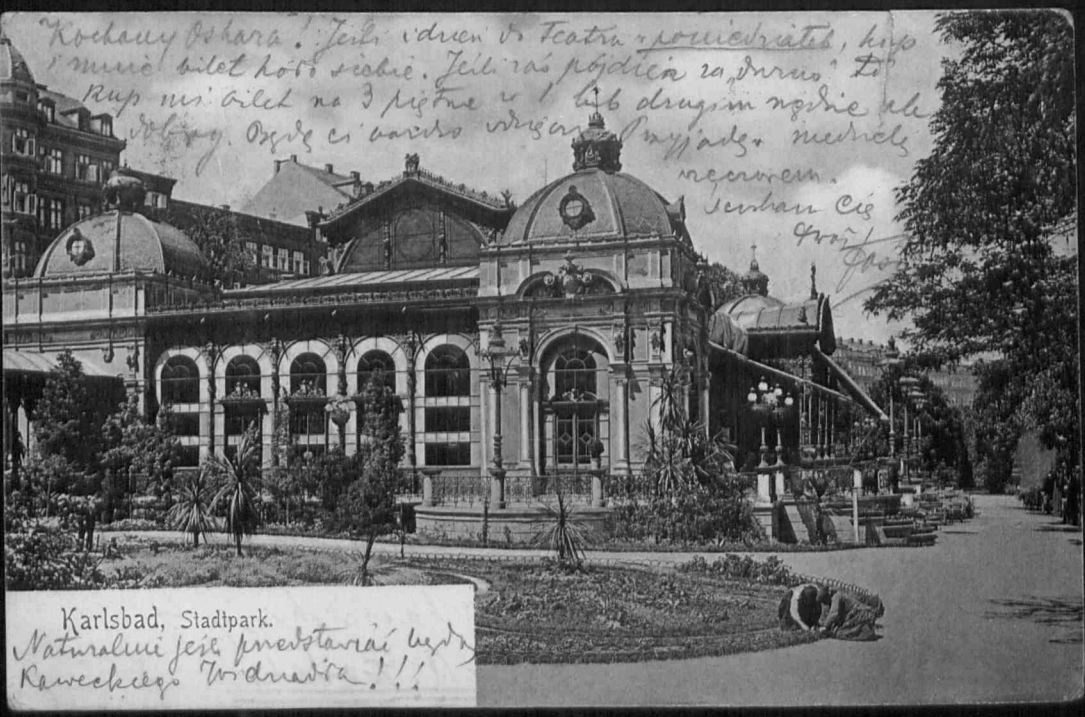 Kochany Oskara! Jeśli idziesz do Teatru w poniedziałek, kup
i mnie bilet koło siebie. Jeśli zaś pójdziesz za "durno" to
kup mi bilet na 3 piętrze w 1 lub drugim rzędzie ale
dobry. Będę ci bardzo Przyjadę w niedzielę
wieczorem.
Ściskam Cię
Twój
Karlsbad, Stadtpark.
Naturalnie jeśli przedstawiać będą
Kaweckiego !!!